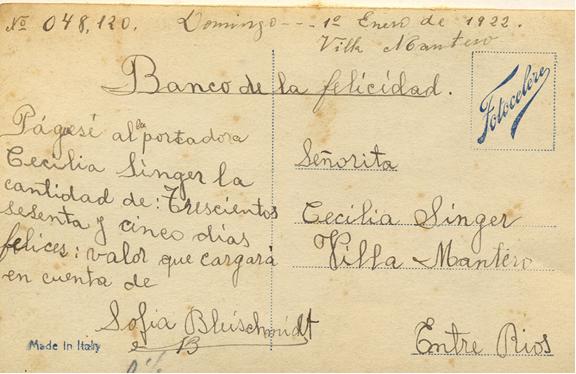 No 048,120. Domingo --- 1º Enero de 1922.
Villa Mantero
Banco de la felicidad.
Fotocelere
Págesé al la portadora
Cecilia Singer la
cantidad de: Trescientos
sesenta y cinco días
felices: valor que cargará
en cuenta de
Sofia Bleischmidt
Señorita
Cecilia Singer
Villa Mantero
Entre Rios
Made in Italy